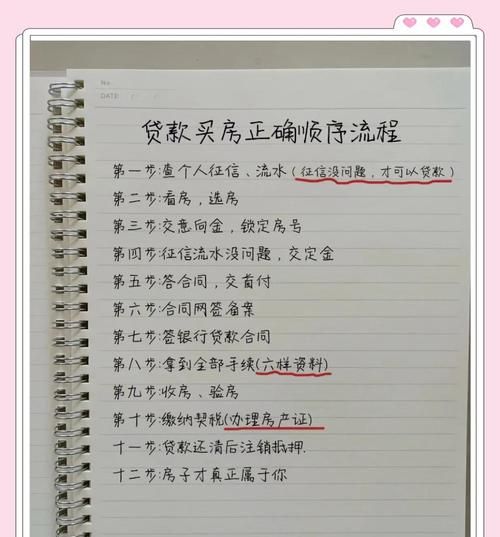 No.
DATE:
贷款买房正确顺序流程
第一步:查个人征信、流水(征信没问题,才可以贷款)
第二步:看房,选房
第三步:交意向金,锁定房号
第四步:征信流水没问题,交定金
第五步:答合同,交首付
第六步:合同网签备案
第七步:签银行贷款合同
第八步:拿到全部手续(六样资料)
第九步:收房、验房
第十步:缴纳契税(办理房产证)
十一步:贷款还清后注销抵押.
十二步:房子才真正属于你